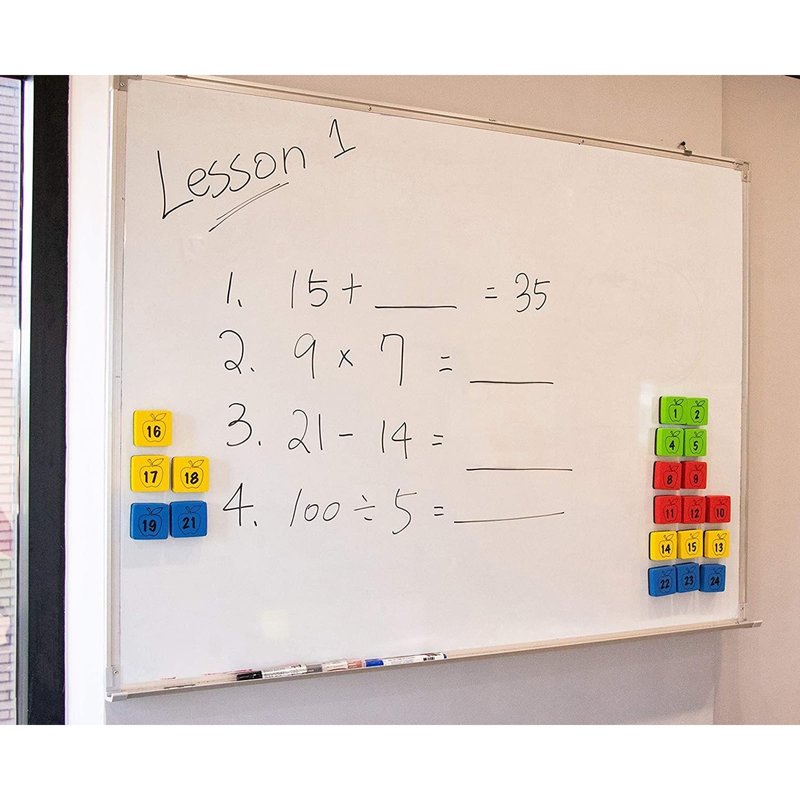 Lesson 1
1. 15 + ____ = 35
2. 9 × 7 = ____
3. 21 - 14 = ____
4. 100 ÷ 5 = ____
16
17 18
19 21
1 2
4 5
8 9
11 12 10
14 15 13
22 23 24